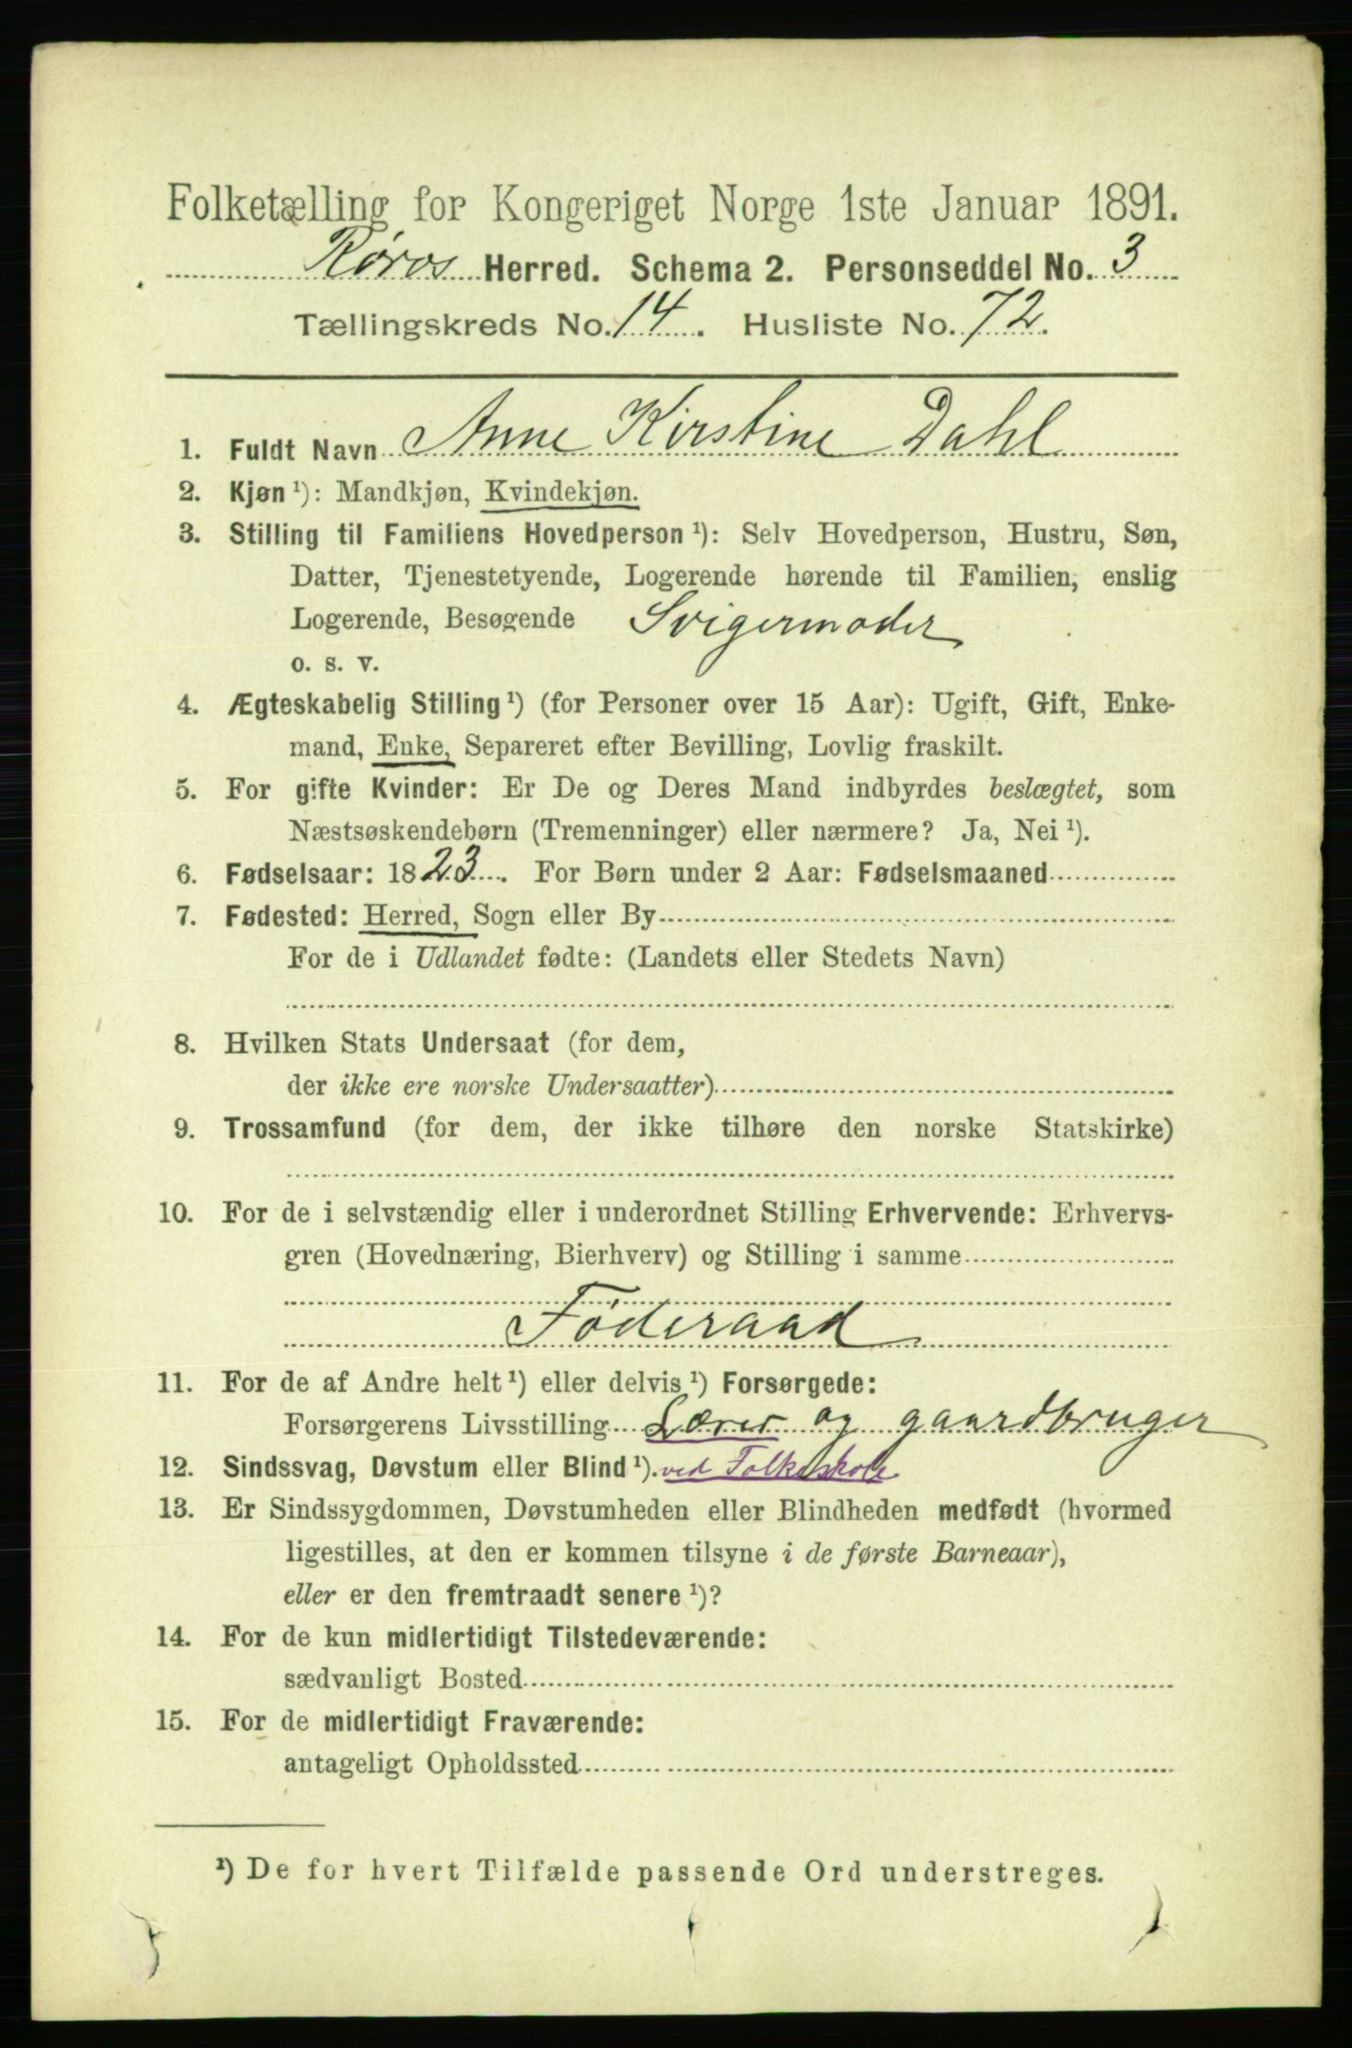 Folketælling for Kongeriget Norge 1ste Januar 1891.
Røros Herred. Schema 2. Personseddel No. 3
Tællingskreds No. 14. Husliste No. 72.
1. Fuldt Navn Anne Kirstine Dahl
2. Kjøn ¹): Mandkjøn, Kvindekjøn.
3. Stilling til Familiens Hovedperson ¹): Selv Hovedperson, Hustru, Søn,
Datter, Tjenestetyende, Logerende hørende til Familien, enslig
Logerende, Besøgende Svigermoder
o. s. v.
4. Ægteskabelig Stilling ¹) (for Personer over 15 Aar): Ugift, Gift, Enke-
mand, Enke, Separeret efter Bevilling, Lovlig fraskilt.
5. For gifte Kvinder: Er De og Deres Mand indbyrdes beslægtet, som
Næstsøskendebørn (Tremenninger) eller nærmere? Ja, Nei ¹).
6. Fødselsaar: 1823. For Børn under 2 Aar: Fødselsmaaned
7. Fødested: Herred, Sogn eller By
For de i Udlandet fødte: (Landets eller Stedets Navn)
8. Hvilken Stats Undersaat (for dem,
der ikke ere norske Undersaatter)
9. Trossamfund (for dem, der ikke tilhøre den norske Statskirke)
10. For de i selvstændig eller i underordnet Stilling Erhvervende: Erhvervs-
gren (Hovednæring, Bierhverv) og Stilling i samme
Föderaad
11. For de af Andre helt ¹) eller delvis ¹) Forsørgede:
Forsørgerens Livsstilling Lærer og gaardbruger
12. Sindssvag, Døvstum eller Blind ¹). ved Folkeskole
13. Er Sindssygdommen, Døvstumheden eller Blindheden medfødt (hvormed
ligestilles, at den er kommen tilsyne i de første Barneaar),
eller er den fremtraadt senere ¹)?
14. For de kun midlertidigt Tilstedeværende:
sædvanligt Bosted
15. For de midlertidigt Fraværende:
antageligt Opholdssted
¹) De for hvert Tilfælde passende Ord understreges.